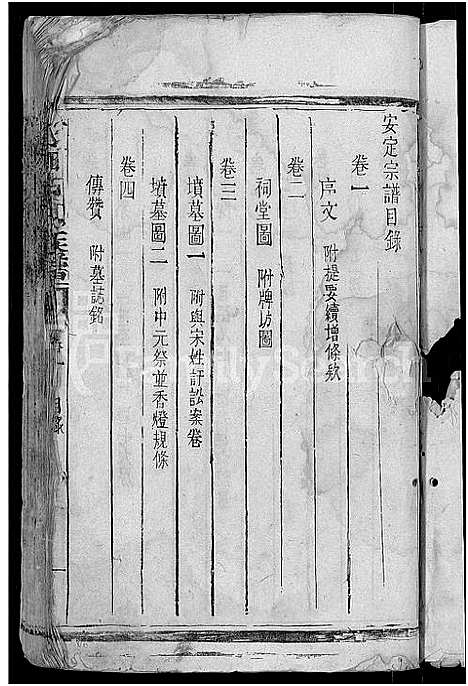 安定宗譜目錄
卷一
序文 附提要續增條欵
卷二
祠堂圖 附牌坊圖
卷三
墳墓圖一 附與宋姓訐訟案卷
墳墓圖二 附中元祭並香燈規條
卷四
傳贊 附墓誌銘
目錄
一